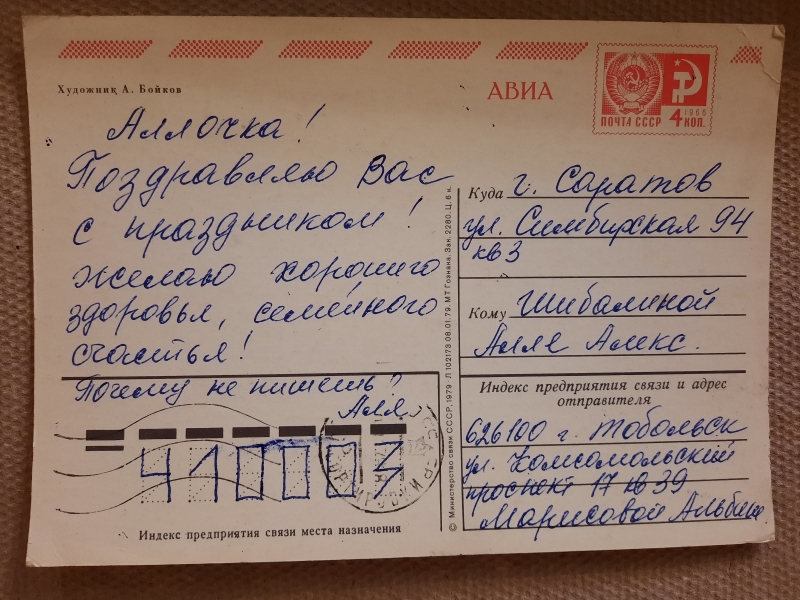 Художник А. Бойков
АВИА
ПОЧТА СССР
1966
4 КОП.
Аллочка!
Поздравляю Вас
с праздником!
желаю хорошего
здоровья, семейного
счастья!
Почему не пишешь?
Аля
Куда г. Саратов
ул. Симбирская 94
кв 3
Кому Шибалиной
Алле Алекс.
Индекс предприятия связи и адрес
отправителя
626100 г. Тобольск
ул. Комсомольский
проспект 17 кв 39
Марисовой Альбине
410003
Индекс предприятия связи места назначения
© Министерство связи СССР, 1979. Л 102173 08.01.79. МТ Гознака. Зак. 2280. Ц. 6 к.